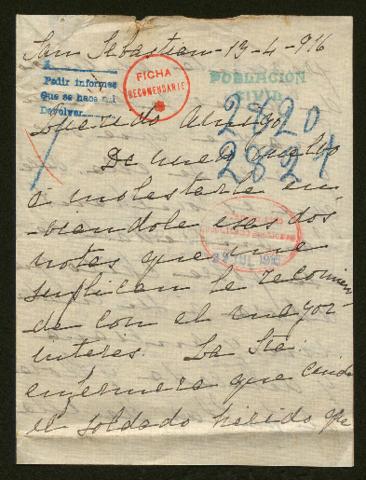 San Sebastian - 13-4-916
A
Pedir informes
Que se hace aqui
Devolver
FICHA
RECOMENDARIE
POBLACION
CIVIL
2820
2821
Querido Amigo,
De nuevo vuelvo
a molestarle en-
-viandole esas dos
notas que me
suplican le recomien
de con el mayor
interes. La Sta
enfermera que cuida
el soldado herido que
JUL 1916